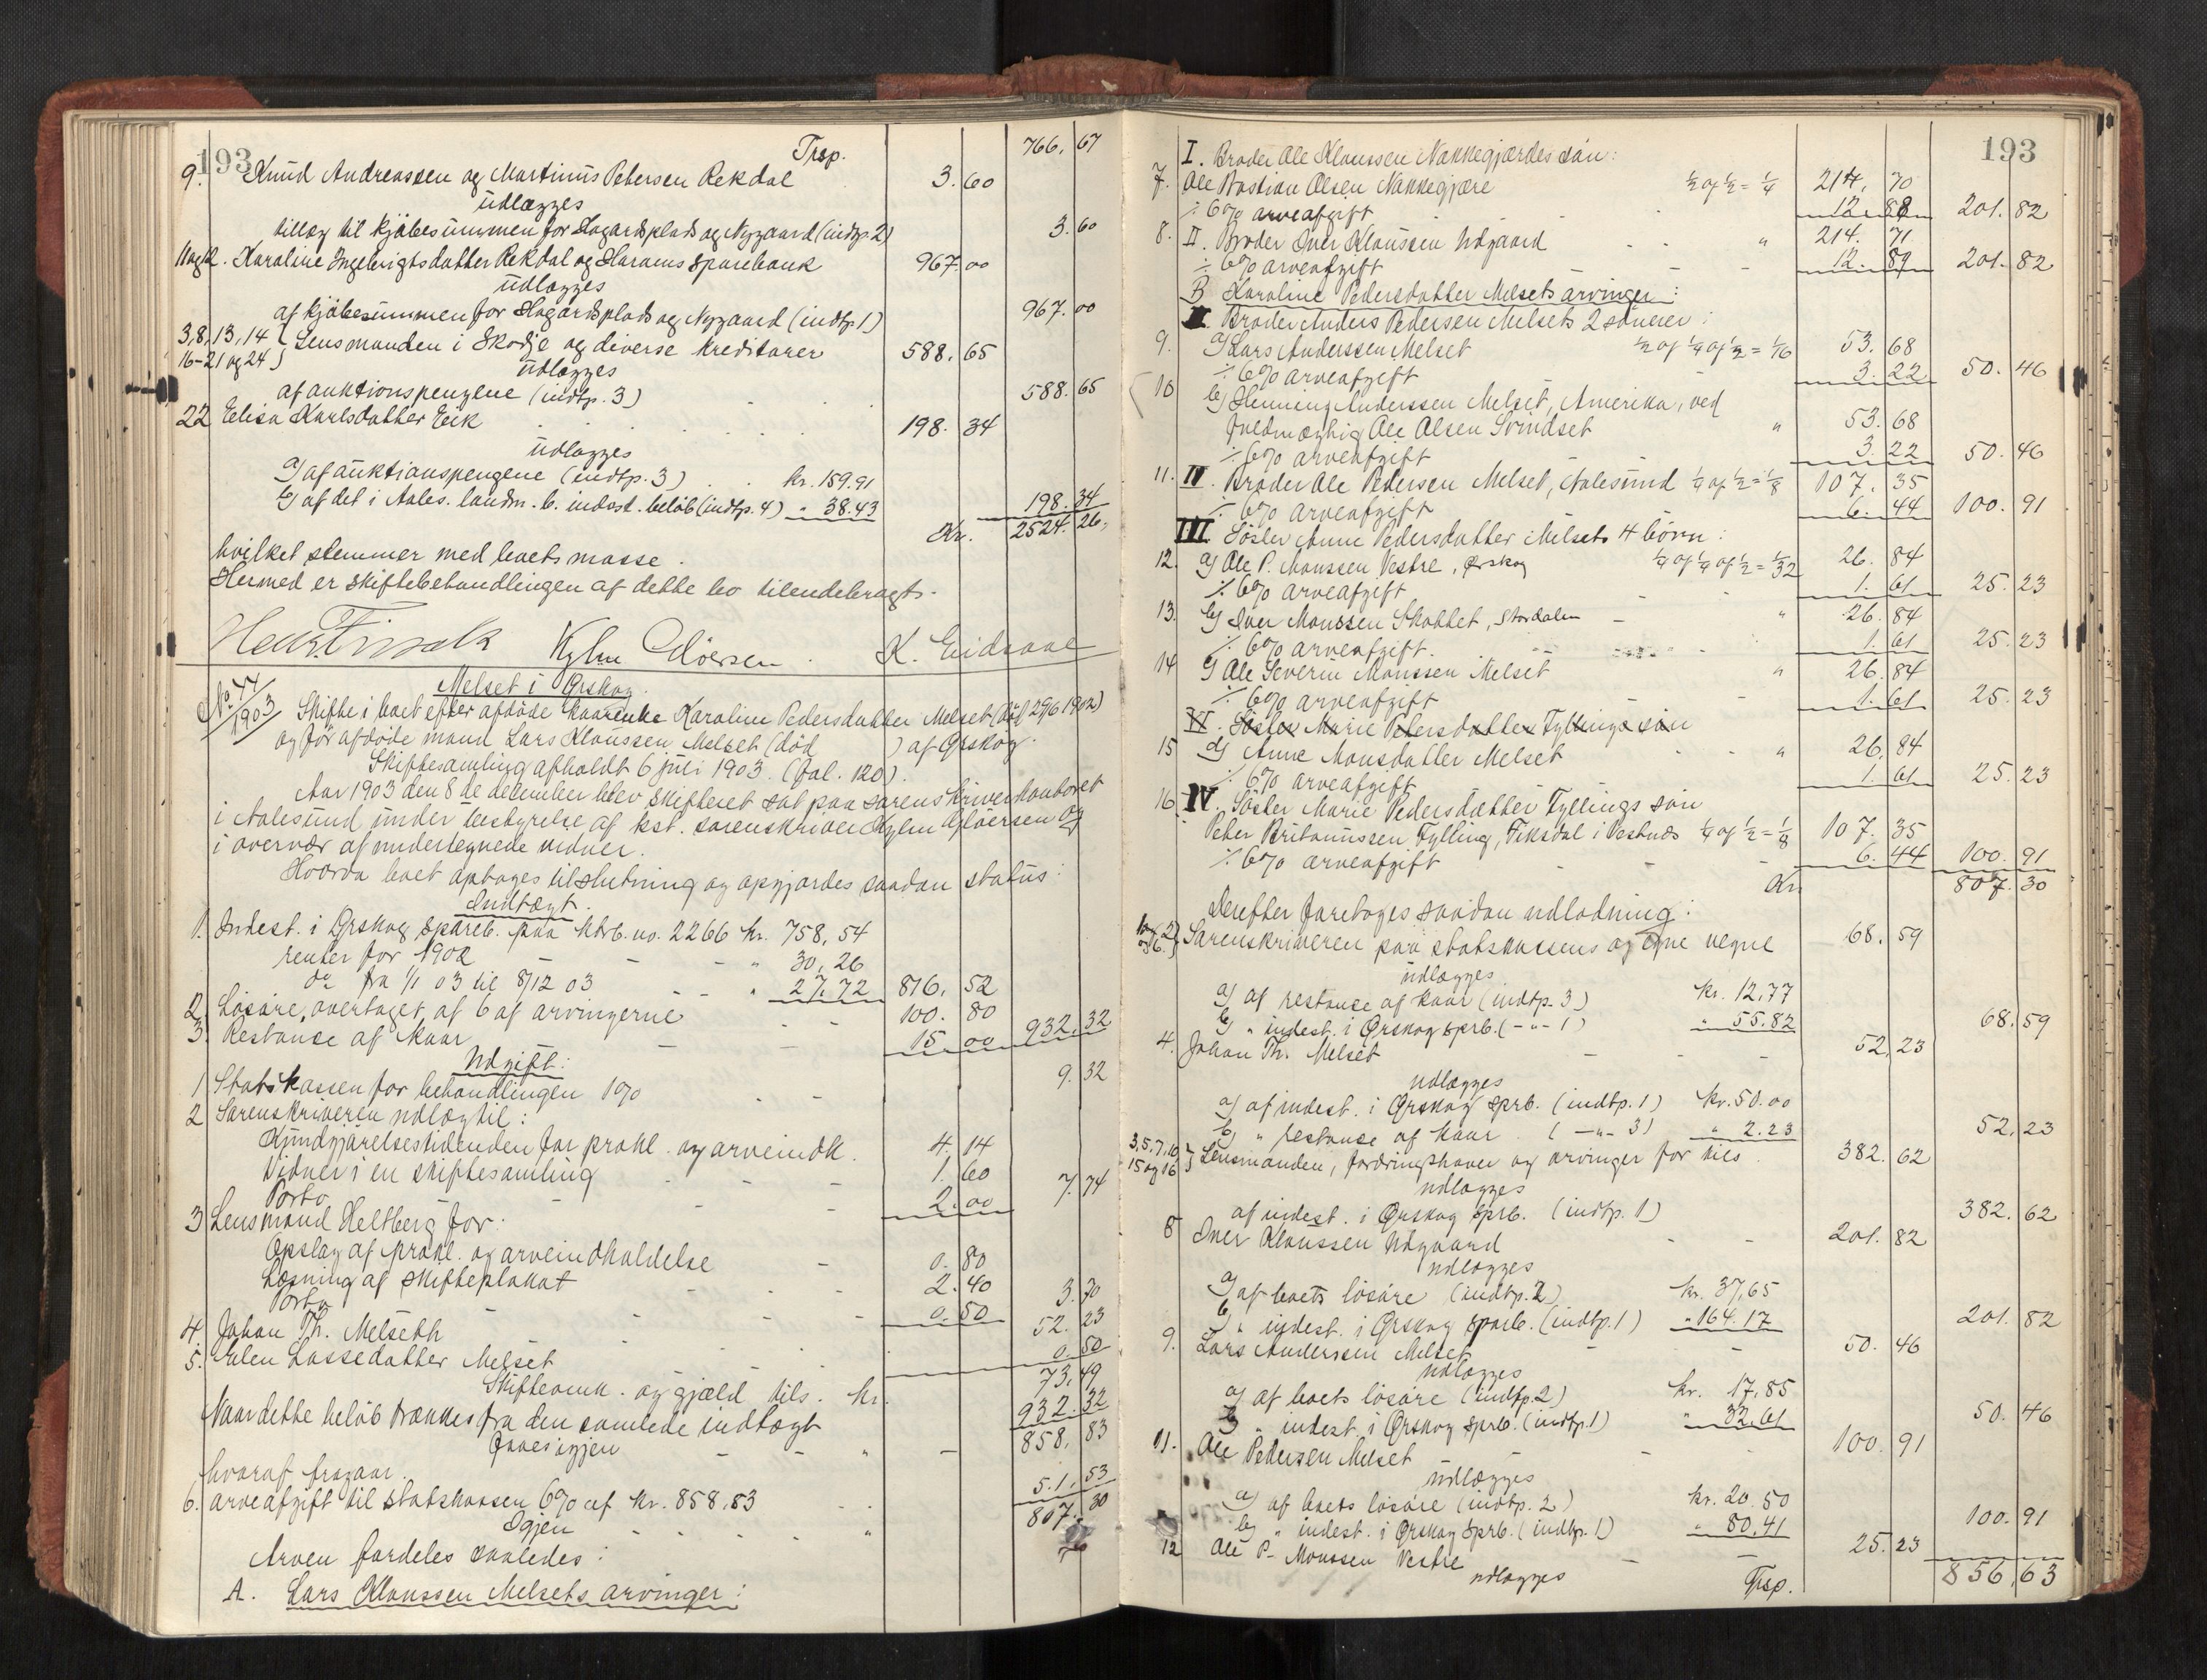 193
Trsp. 766. 67
9. Knud Andreassen og Martinus Petersen Rekdal 3. 60
udlægges
tillæg til kjøbesummen for Hagardsplads og Nygaard (indtp. 2) 3. 60
11 og 12. Karoline Ingebrigtsdatter Rekdal og Harams sparebank 967. 00
udlægges
af kjøbesummen for Hagardsplads og Nygaard (indtp. 1) 967. 00
3, 8, 13, 14
16-21 og 24 } Lensmanden i Skodje og diverse kreditorer 588. 65
udlægges
af auktionspengene (indtp. 3) 588. 65
22 Elisa Karlsdatter Eik 198. 34
udlægges
a) af auktionspengene (indtp. 3) kr. 159.91
b) af det i Aales. landm. b. indest. beløb (indtp. 4) " 38.43 198. 34
Kr. 2524. 26
hvilket stemmer med boets masse.
Hermed er skiftebehandlingen af dette bo tilendebragt.
K. Eidsaae
No. 44/1903 Melset i Ørskog.
Skifte i boet efter afdøde kaarenke Karoline Pedersdatter Melset (død 29/6 1902)
og før afdøde mand Lars Klaussen Melset (død ) af Ørskog.
Skiftesamling afholdt 6 juli 1903. (fol. 120).
Aar 1903 den 8de december blev skifteret sat paa sorenskriverkontoret
i Aalesund under bestyrelse af kst. sorenskriver Kylm Afløersen og
i overvær af undertegnede vidner.
Hvorda boet optages til slutning og opgjordes saadan status:
Indtægt.
1. Indest. i Ørskog spareb. paa ktrb. no. 2266 kr. 758, 54
renter for 1902 - - - " 30, 26
do fra 1/1 03 til 8/12 03 - - " 27. 72 816. 52
2. Løsøre, overtaget af 6 af arvingerne - - 100. 80
3. Restanse af kaar - - - 15 00 932. 32
Udgift:
1 Statskassen for behandlingen 1% - - 9. 32
2 Sorenskriveren udlæg til:
Kundgjørelsestidenden for prokl. og arveindk. 4. 14
Vidner i en skiftesamling - - - 1. 60
Porto 2. 00 7. 74
3 Lensmand Heltberg for:
Opslag af prokl. og arveindkaldelse - 0. 80
Læsning af skifteplakat - - - 2. 40
Porto - - - 0. 50 3. 70
4 Johan Th. Melseth 52. 23
5. Malen Lassedatter Melset 0. 50
Skifteomk. og gjæld tils. kr. 73, 49
Naar dette beløb trækkes fra den samlede indtægt 932. 32
haves igjen - - " - 858, 83
hvoraf fragaar.
6. Arveafgift til statskassen 6% af kr. 858,83 - - 51. 53
Igjen - - - - - " 807. 30
Arven fordeles saaledes:
A. Lars Klaussen Melsets arvinger:
193
I. Broder Ole Klaussen Nakkegjærdes søn:
7. Ole Bastian Olsen Nakkegjære ½ af ½ = ¼ 214, 70
÷ 6% arveafgift - 12. 88 201. 82
8. II. Broder Iver Klaussen Udgaard - - " 214. 71
÷ 6% arveafgift - - - 12. 89 201. 82
B Karoline Pedersdatter Melsets arvinger:
I. Broder Anders Pedersen Melsets 2 sønner:
9. a) Lars Anderssen Melset ½ af ¼ af ½ = 1/16 53. 68
÷ 6% arveafgift 3. 22 50. 46
10 b) Henning Anderssen Melset, Amerika, ved
fuldmægtig Ole Olsen Svindset " 53. 68
÷ 6% arveafgift 3. 22 50. 46
11. II. Broder Ole Pedersen Melset, Aalesund ¼ af ½ = 1/8 107. 35
÷ 6% arveafgift - - 6. 44 100. 91
III. Søster Anne Pedersdatter Melsets 4 børn:
12. a) Ole P. Monssen Vestre, Ørskog ¼ af ¼ af ½ = 1/32 26. 84
÷ 6% arveafgift - - 1. 61 25. 23
13. b) Iver Monssen Skotlet, Stordalen - " 26. 84
÷ 6% arveafgift. 1. 61 25. 23
14 c) Ole Severin Monssen Melset " 26. 84
÷ 6% arveafgift - - 1. 61 25. 23
VI. Søster Marie Petersdatter Tyllings søn
15 d) Anne Monsdatter Melset - - " 26. 84
÷ 6% arveafgift 1. 61 25. 23
16 IV. Søster Marie Pedersdatter Tyllings søn
Peter Britanussen Tylling, Fiksdal i Vestnæs ¼ af ½ = 1/8 107. 35
÷ 6% arveafgift - - - 6. 44 100. 91
Kr. 807. 30
Derefter foretages saadan udlodning:
1 og 2
og 6. } Sorenskriveren paa statskassens og egne vegne 68. 59
udlægges
a) af restanse af kaar (indtp. 3) kr. 12,77
b) " indest. i Ørskog sprb. (-"- 1) " 55.82 68. 59
4. Johan Th. Melset - - - 52, 23
udlægges
a) af indest. i Ørskog sprb. (indtp. 1) kr. 50.00
b) " restanse af kaar. (-"- 3) " 2.23 52, 23
3, 5, 7, 10
15 og 16 } Lensmanden, fordringshaver og arvinger for tils. 382. 62
udlægges
af indest. i Ørskog sprb. (indtp. 1) 382. 62
8 Iver Klaussen Udgaard - - 201. 82
udlægges
a) af boets løsøre (indtp. 2) kr. 37,65
b) " indest. i Ørskog sparb. (indtp. 1) " 164.17 201. 82
9. Lars Anderssen Melset - - 50. 46
udlægges
a) af boets løsøre (indtp. 2) kr. 17,85
b) " indest. i Ørskog sprb. (indtp. 1) " 32,61 50. 46
11. Ole Pedersen Melset - - 100. 91
udlægges
a) af boets løsøre (indtp. 2) kr. 20. 50
b) " indest. i Ørskog sprb. (indtp. 1) " 80,41 100. 91
12 Ole P. Monssen Vestre - - 25. 23
udlægges Trsp. 856, 63